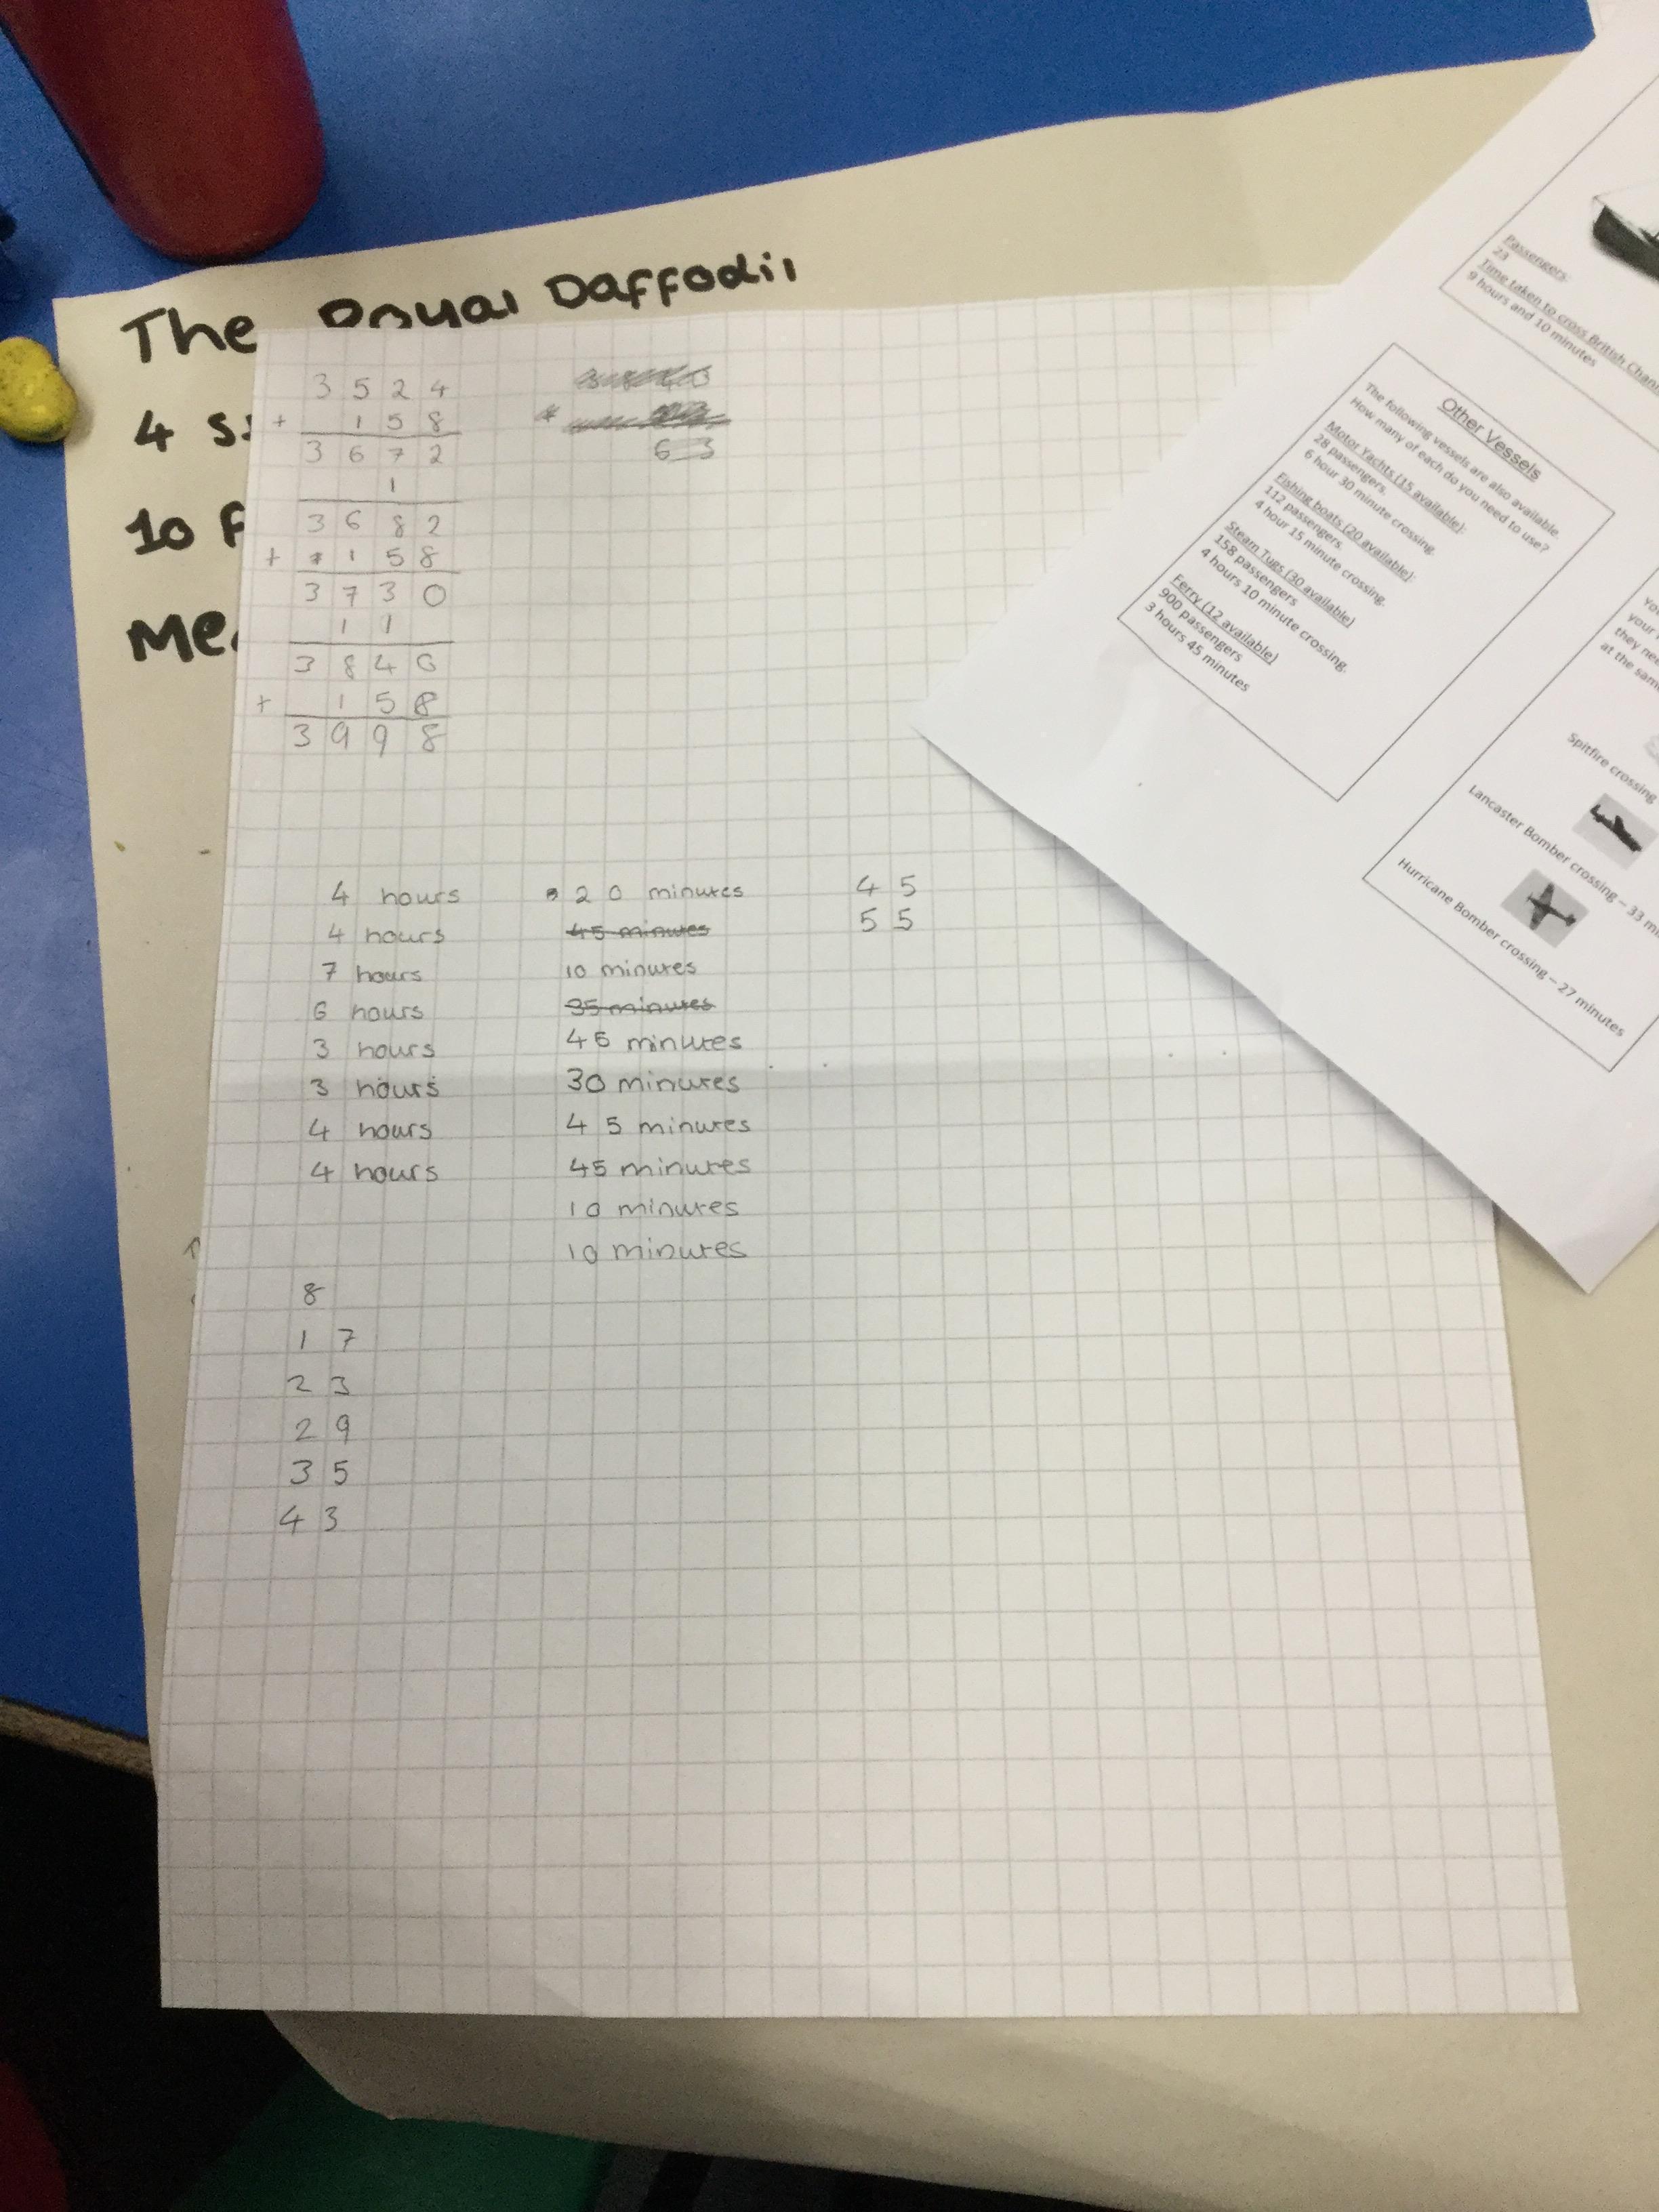 The Royal Daffodil
4
10
3 5 2 4
+ 1 5 8
3 6 7 2
1
3 6 8 2
+ 1 5 8
3 7 3 0
1 1
3 8 4 0
+ 1 5 8
3 9 9 8
6 3
4 hours 20 minutes 45
4 hours 45 minutes 55
7 hours 10 minutes
6 hours 35 minutes
3 hours 45 minutes
3 hours 30 minutes
4 hours 45 minutes
4 hours 45 minutes
10 minutes
10 minutes
8
1 7
2 3
2 9
3 5
4 3
Passengers:
23
Time taken to cross British
9 hours and 10 minutes
Other Vessels
The following vessels are also available.
How many of each do you need to use?
Motor Yachts (15 available):
28 passengers.
6 hour 30 minute crossing.
Fishing boats (20 available):
112 passengers.
4 hour 15 minute crossing.
Steam Tugs (30 available)
158 passengers
4 hours 10 minute crossing.
Ferry (12 available)
900 passengers
3 hours 45 minutes
your
at the
Spitfire crossing
Lancaster Bomber crossing – 33
Hurricane Bomber crossing – 27 minutes